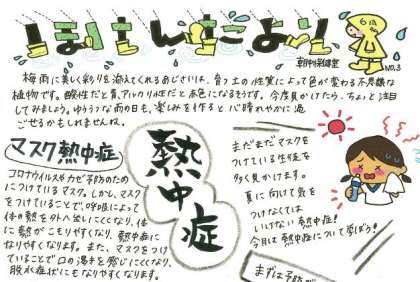 ほけんだより
6月
NO.3
梅雨に美しく彩りを添えてくれるあじさいは、育つ土の性質によって色が変わる不思議な
植物です。酸性だと青、アルカリ性だと赤色になるそうです。今度見かけたら、ちょっと注目
してみましょう。ゆううつな雨の日も、楽しみを作ると心晴れやかに過
ごせるかもしれませんね。
マスク熱中症
コロナウイルスやカゼ予防のため
につけているマスク。しかし、マスク
をつけていることで、呼吸によって
体の熱を外へ出しにくくなり、体
に熱がこもりやすくなり、熱中症に
なりやすくなります。また、マスクをつけ
ていることで口の渇きを感じにくくなり、
脱水症状にもなりやすくなります。
熱中症
まだまだマスクを
つけている生徒を
多く見かけます。
夏に向けて気を
つけなくては
いけない熱中症!
今月は熱中症について学ぼう!
まずは予防が